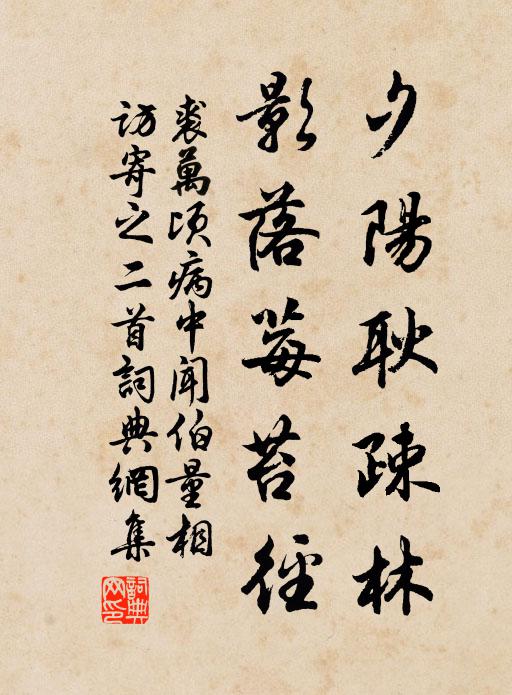 夕陽耿疎林
影落莓苔徑
裘萬頃病中聞伯量相
訪寄之二首詞典網集
詞典网印